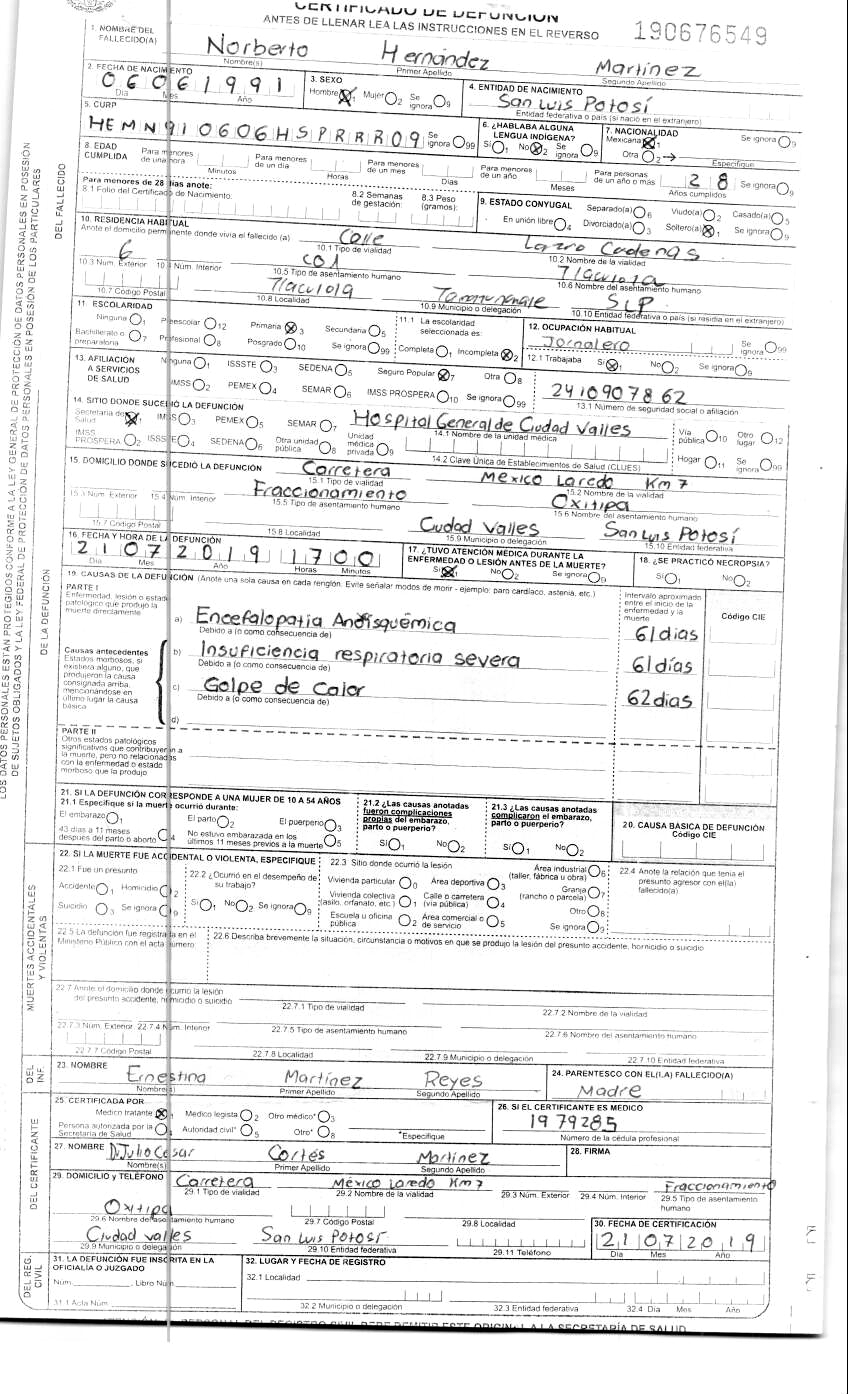 CERTIFICADO DE DEFUNCIÓN
ANTES DE LLENAR LEA LAS INSTRUCCIONES EN EL REVERSO
190676549
1. NOMBRE DEL FALLECIDO(A) Norberto Hernández Martínez
Nombre(s) Primer Apellido Segundo Apellido
2. FECHA DE NACIMIENTO 06061991 3. SEXO Hombre 1 Mujer 2 Se ignora 9 4. ENTIDAD DE NACIMIENTO San Luis Potosí
Día Mes Año Entidad federativa o país (si nació en el extranjero)
5. CURP HEMN910606HSPRRR09 Se ignora 99 6. ¿HABLABA ALGUNA LENGUA INDÍGENA? Sí 1 No 2 Se ignora 9 7. NACIONALIDAD Mexicana 1 Otra 2 Se ignora 9
Especifique
8. EDAD CUMPLIDA Para menores de una hora Para menores de un día Para menores de un mes Para menores de un año Para personas de un año o más 28 Se ignora 9
Minutos Horas Días Meses Años cumplidos
Para menores de 28 días anote:
8.1 Folio del Certificado de Nacimiento: 8.2 Semanas de gestación: 8.3 Peso (gramos):
9. ESTADO CONYUGAL Separado(a) 6 Viudo(a) 2 Casado(a) 5
En unión libre 4 Divorciado(a) 3 Soltero(a) 1 Se ignora 9
10. RESIDENCIA HABITUAL
Anote el domicilio permanente donde vivía el fallecido (a) Calle Lazaro Cadenas
10.1 Tipo de vialidad 10.2 Nombre de la vialidad
6 COl Tlacuiola
10.3 Núm. Exterior 10.4 Núm. Interior 10.5 Tipo de asentamiento humano 10.6 Nombre del asentamiento humano
Tlacuiola SLP
10.7 Código Postal 10.8 Localidad 10.9 Municipio o delegación 10.10 Entidad federativa o país (si residía en el extranjero)
11. ESCOLARIDAD
Ninguna 1 Preescolar 12 Primaria 3 Secundaria 5
Bachillerato o preparatoria 7 Profesional 8 Posgrado 10 Se ignora 99
11.1 La escolaridad seleccionada es: Completa 1 Incompleta 2
12. OCUPACIÓN HABITUAL
Jornalero Se ignora 99
12.1 Trabajaba Sí 1 No 2 Se ignora 9
13. AFILIACIÓN A SERVICIOS DE SALUD Ninguna 1 ISSSTE 3 SEDENA 5 Seguro Popular 7 Otra 8
IMSS 2 PEMEX 4 SEMAR 6 IMSS PROSPERA 10 Se ignora 99
2410907862
13.1 Número de seguridad social o afiliación
14. SITIO DONDE SUCEDIÓ LA DEFUNCIÓN
Secretaría de Salud 1 IMSS 3 PEMEX 5 SEMAR 7 Hospital General de Ciudad Valles
14.1 Nombre de la unidad médica
Vía pública 10 Otro lugar 12
IMSS PROSPERA 2 ISSSTE 4 SEDENA 6 Otra unidad pública 8 Unidad médica privada 9
14.2 Clave Única de Establecimientos de Salud (CLUES) Hogar 11 Se ignora 99
15. DOMICILIO DONDE SUCEDIÓ LA DEFUNCIÓN Carretera México Laredo Km 7
15.1 Tipo de vialidad 15.2 Nombre de la vialidad
Fraccionamiento Oxitipa
15.3 Núm. Exterior 15.4 Núm. Interior 15.5 Tipo de asentamiento humano 15.6 Nombre del asentamiento humano
Ciudad Valles San Luis Potosí
15.7 Código Postal 15.8 Localidad 15.9 Municipio o delegación 15.10 Entidad federativa
16. FECHA Y HORA DE LA DEFUNCIÓN
21072019 1700
Día Mes Año Horas Minutos
17. ¿TUVO ATENCIÓN MÉDICA DURANTE LA ENFERMEDAD O LESIÓN ANTES DE LA MUERTE?
Sí 1 No 2 Se ignora 9
18. ¿SE PRACTICÓ NECROPSIA?
Sí 1 No 2
19. CAUSAS DE LA DEFUNCIÓN (Anote una sola causa en cada renglón. Evite señalar modos de morir - ejemplo: paro cardíaco, astenia, etc.)
Intervalo aproximado entre el inicio de la enfermedad y la muerte
Código CIE
PARTE I
Enfermedad, lesión o estado patológico que produjo la muerte directamente
a) Encefalopatia Anoxisquémica 61 dias
Debido a (o como consecuencia de)
Causas antecedentes
Estados morbosos, si existiera alguno, que produjeron la causa consignada arriba, mencionándose en último lugar la causa básica
b) Insuficiencia respiratoria severa 61 días
Debido a (o como consecuencia de)
c) Golpe de Calor 62 dias
Debido a (o como consecuencia de)
d)
PARTE II
Otros estados patológicos significativos que contribuyeron a la muerte, pero no relacionados con la enfermedad o estado morboso que la produjo
21. SI LA DEFUNCIÓN CORRESPONDE A UNA MUJER DE 10 A 54 AÑOS
21.1 Especifique si la muerte ocurrió durante:
El embarazo 1 El parto 2 El puerperio 3
43 días a 11 meses después del parto o aborto 4 No estuvo embarazada en los últimos 11 meses previos a la muerte 5
21.2 ¿Las causas anotadas fueron complicaciones propias del embarazo, parto o puerperio?
Sí 1 No 2
21.3 ¿Las causas anotadas complicaron el embarazo, parto o puerperio?
Sí 1 No 2
20. CAUSA BÁSICA DE DEFUNCIÓN
Código CIE
22. SI LA MUERTE FUE ACCIDENTAL O VIOLENTA, ESPECIFIQUE
22.1 Fue un presunto
Accidente 1 Homicidio 2
Suicidio 3 Se ignora 9
22.2 ¿Ocurrió en el desempeño de su trabajo?
Sí 1 No 2 Se ignora 9
22.3 Sitio donde ocurrió la lesión
Vivienda particular 0 Área deportiva 3 Área industrial (taller, fábrica u obra) 6
Vivienda colectiva (asilo, orfanato, etc.) 1 Calle o carretera (vía pública) 4 Granja (rancho o parcela) 7
Escuela u oficina pública 2 Área comercial o de servicio 5 Otro 8
Se ignora 9
22.4 Anote la relación que tenía el presunto agresor con el(la) fallecido(a)
22.5 La defunción fue registrada en el Ministerio Público con el acta número
22.6 Describa brevemente la situación, circunstancia o motivos en que se produjo la lesión del presunto accidente, homicidio o suicidio
22.7 Anote el domicilio donde ocurrió la lesión del presunto accidente, homicidio o suicidio
22.7.1 Tipo de vialidad 22.7.2 Nombre de la vialidad
22.7.3 Núm. Exterior 22.7.4 Núm. Interior 22.7.5 Tipo de asentamiento humano 22.7.6 Nombre del asentamiento humano
22.7.7 Código Postal 22.7.8 Localidad 22.7.9 Municipio o delegación 22.7.10 Entidad federativa
23. NOMBRE Ernestina Martínez Reyes
Nombre(s) Primer Apellido Segundo Apellido
24. PARENTESCO CON EL(LA) FALLECIDO(A)
Madre
25. CERTIFICADA POR
Médico tratante 1 Médico legista 2 Otro médico* 3
Persona autorizada por la Secretaría de Salud 4 Autoridad civil* 5 Otro* 8 *Especifique
26. SI EL CERTIFICANTE ES MÉDICO
1979285
Número de la cédula profesional
27. NOMBRE Dr. Julio César Cortés Martínez 28. FIRMA
Nombre(s) Primer Apellido Segundo Apellido
29. DOMICILIO Y TELÉFONO Carretera México Laredo Km 7 Fraccionamiento
29.1 Tipo de vialidad 29.2 Nombre de la vialidad 29.3 Núm. Exterior 29.4 Núm. Interior 29.5 Tipo de asentamiento humano
Oxitipa
29.6 Nombre del asentamiento humano 29.7 Código Postal 29.8 Localidad
30. FECHA DE CERTIFICACIÓN
Ciudad Valles San Luis Potosí 21072019
29.9 Municipio o delegación 29.10 Entidad federativa 29.11 Teléfono Día Mes Año
31. LA DEFUNCIÓN FUE INSCRITA EN LA OFICIALÍA O JUZGADO
Núm. Libro Núm.
31.1 Acta Núm.
32. LUGAR Y FECHA DE REGISTRO
32.1 Localidad
32.2 Municipio o delegación 32.3 Entidad federativa 32.4 Día Mes Año
LOS DATOS PERSONALES ESTÁN PROTEGIDOS CONFORME A LA LEY GENERAL DE PROTECCIÓN DE DATOS PERSONALES EN POSESIÓN DE SUJETOS OBLIGADOS Y LA LEY FEDERAL DE PROTECCIÓN DE DATOS PERSONALES EN POSESIÓN DE LOS PARTICULARES
DEL FALLECIDO
DE LA DEFUNCIÓN
MUERTES ACCIDENTALES Y VIOLENTAS
DEL INF.
DEL CERTIFICANTE
DEL REG. CIVIL